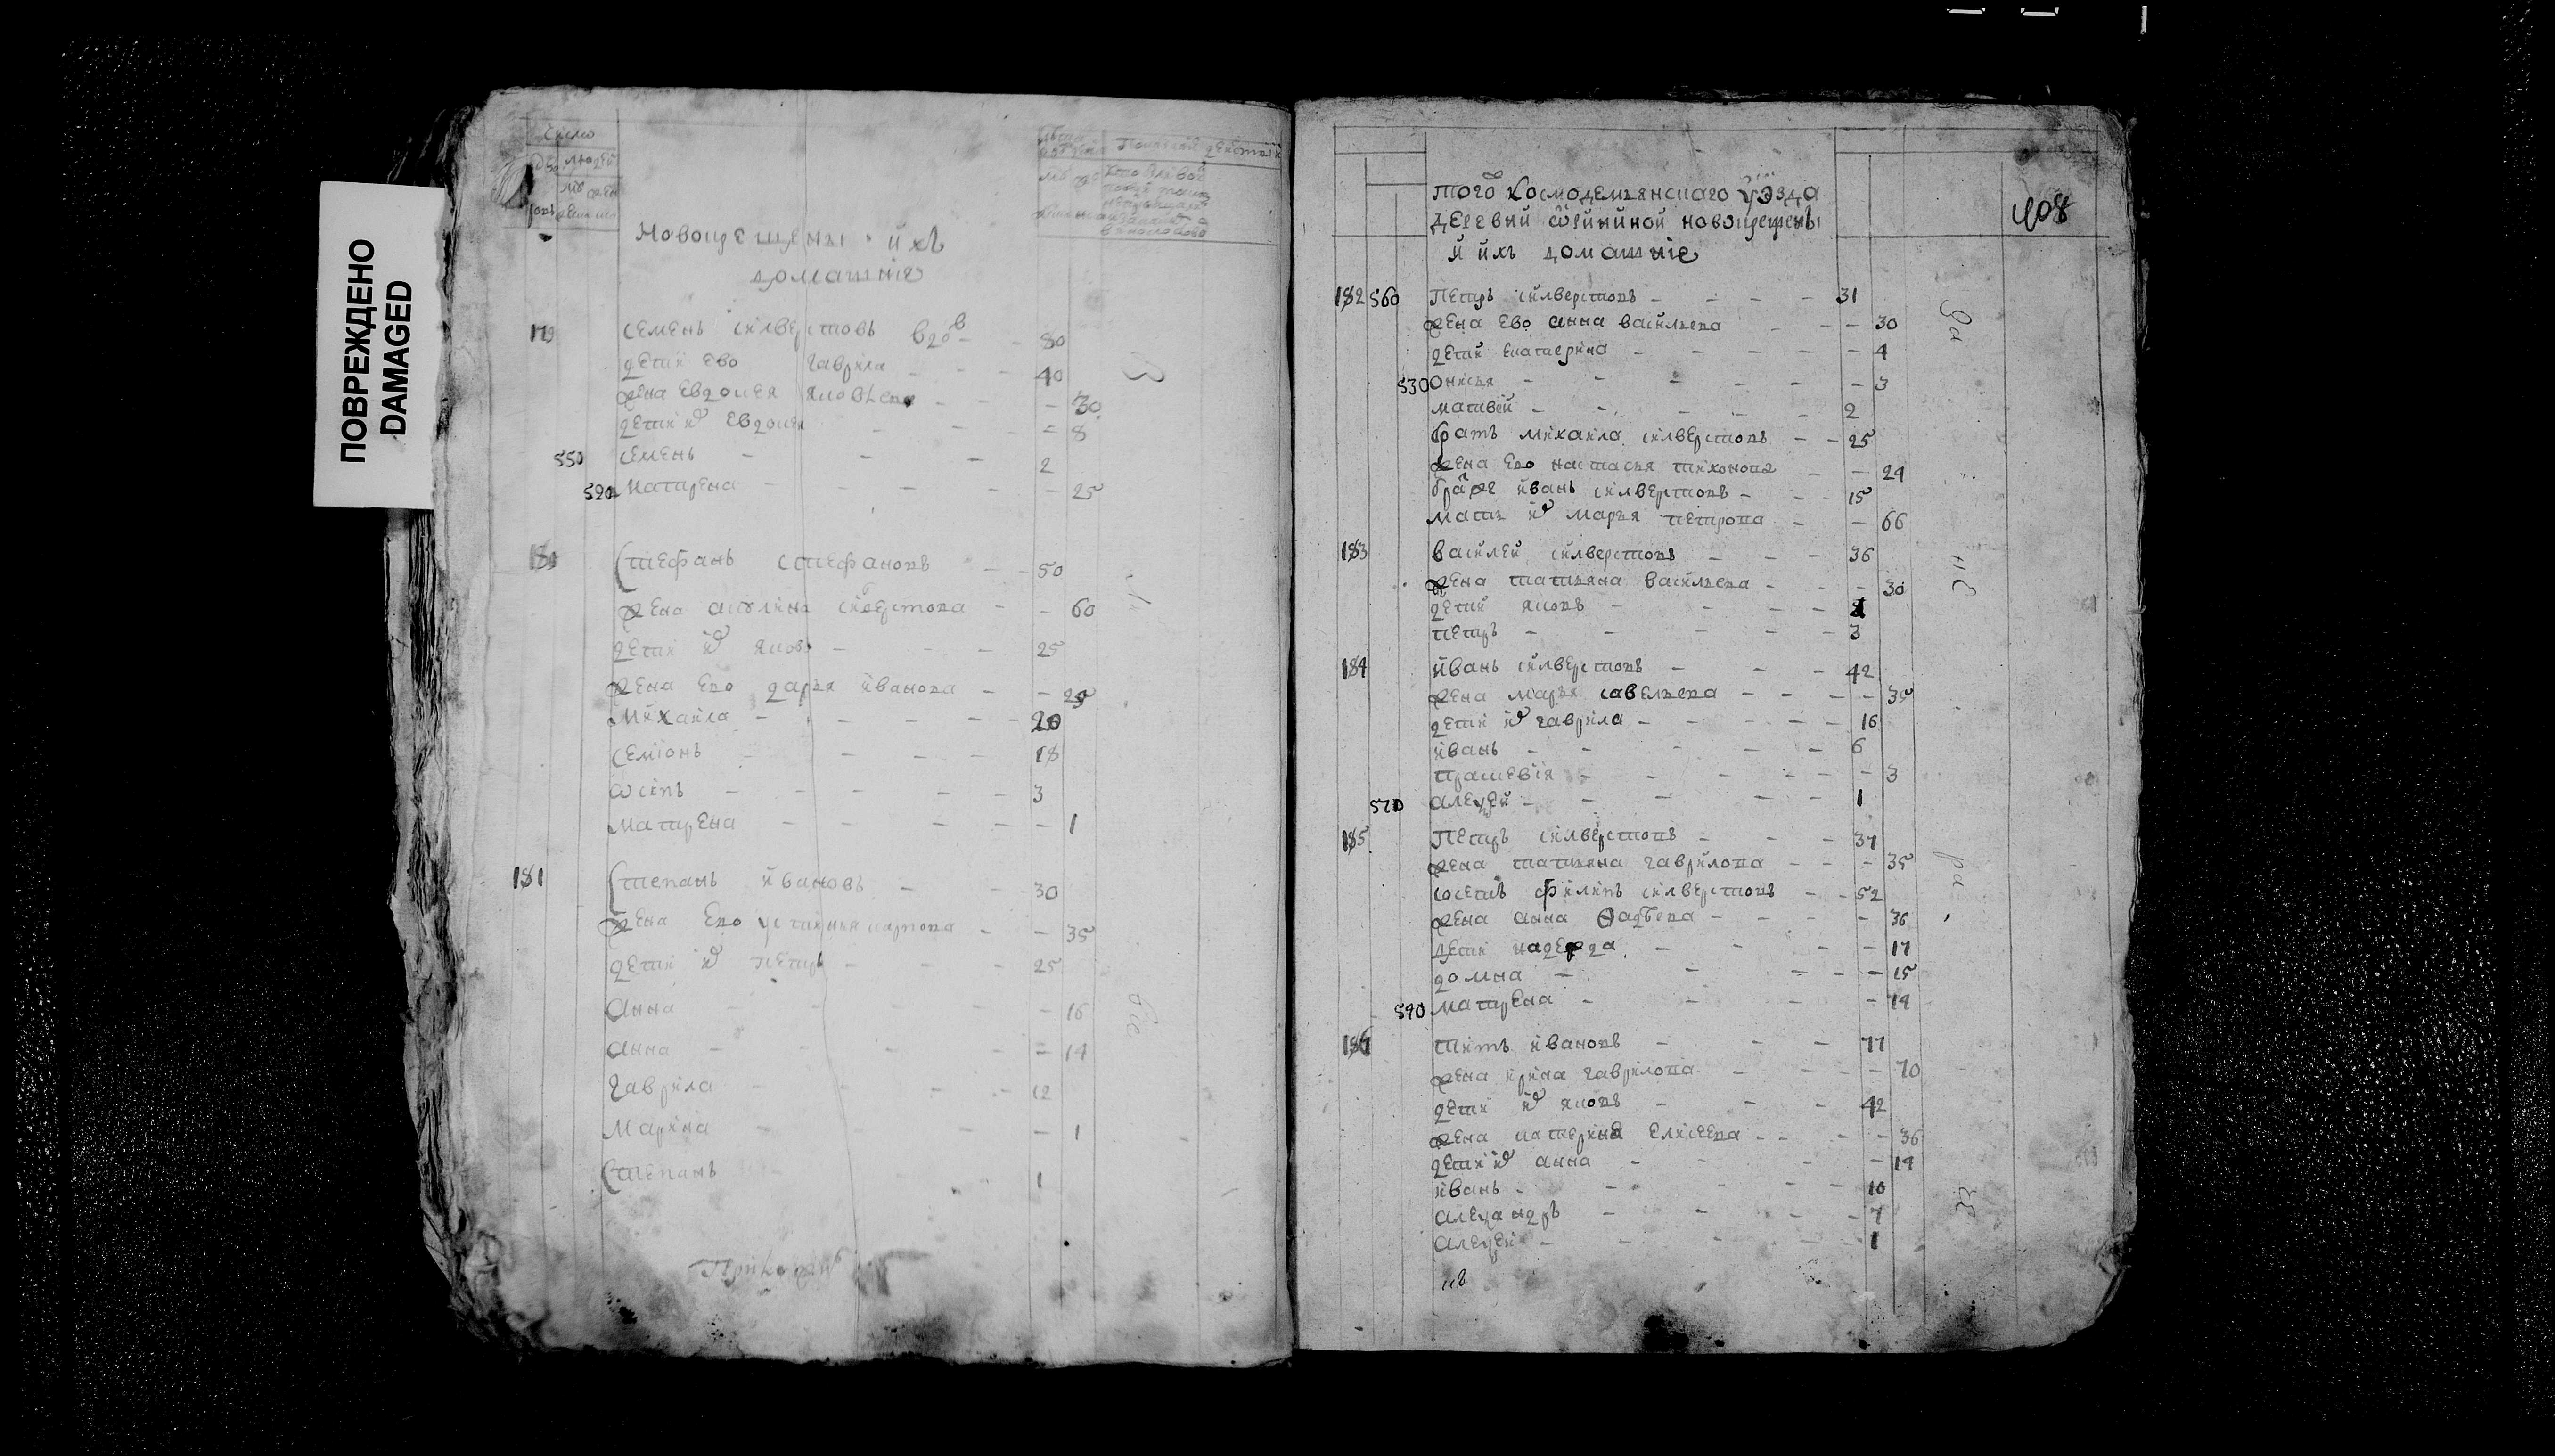 ПОВРЕЖДЕНО
DAMAGED
число
дво людей
Новокрещены ихъ
домашнїе
179 Семенъ Силверстовъ вдов 80
дети ево Гаврила 40
жена Евдокея Яковлева 30
дети их Евдокея 8
550 Семенъ 2
Матрена 25
180 Стефанъ Стефановъ 50
жена Акулина 60
дети их Яковъ 25
жена ево Дарья Иванова 25
Михаила 20
Семіонъ 18
Ѡсипъ 3
Матрена 1
181 Степанъ Ивановъ 30
жена ево Устинья Карпова 35
дети их Петръ 25
Анна 16
Анна 14
Гаврила 12
Марина 1
Степанъ 1
408
того Космодемьянскаго уезда
деревни новокрещены
и ихъ домашнїе
182 560 Петръ Силверстовъ 31
жена ево Анна Васильева 30
дети Екатерина 4
530 Онисья 3
Матвей 2
братъ Михаила Силверстовъ 25
жена ево Настасья Тихонова 24
Иванъ Силверстовъ 15
мать их Марья Петрова 66
183 Василей Силверстовъ 36
жена Татьяна Васильева 30
дети Яковъ
Петръ 3
184 Иванъ Силверстовъ 42
жена Марья Савельева 35
дети их Гаврила 16
Иванъ 6
Прасковія 3
570 Алеѯей 1
185 Петръ Силверстовъ 37
жена Татьяна Гаврилова 35
Филипъ Силверстовъ 52
жена Анна Ѳадѣева 36
дети Надежда 17
Домна 15
590 Матрена 14
186 Титъ Ивановъ 77
жена Ирина Гаврилова 70
дети их Яковъ 42
жена Катерина Елисеева 36
дети их Анна 14
Иванъ 10
Алеѯандръ 7
Алеѯей 1